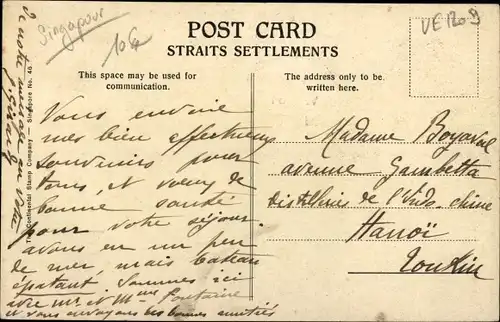 Singapour
VE 1209
POST CARD
STRAITS SETTLEMENTS
This space may be used for
communication.
The address only to be
written here.
Vous envoie
mes bien affectueux
souvenirs pour
tous, et voeux de
bonne santé
pour votre séjour
avons eu un peu
de mer, mais bateau
épatant. Sommes ici
avec Mr et Mme Fontaine
et vous envoyons les bonnes amitiés
Madame Boyaval
avenue Gambetta
Distilleries de l'Indo-chine
Hanoï
Tonkin
The Continental Stamp Company — Singapore No. 46